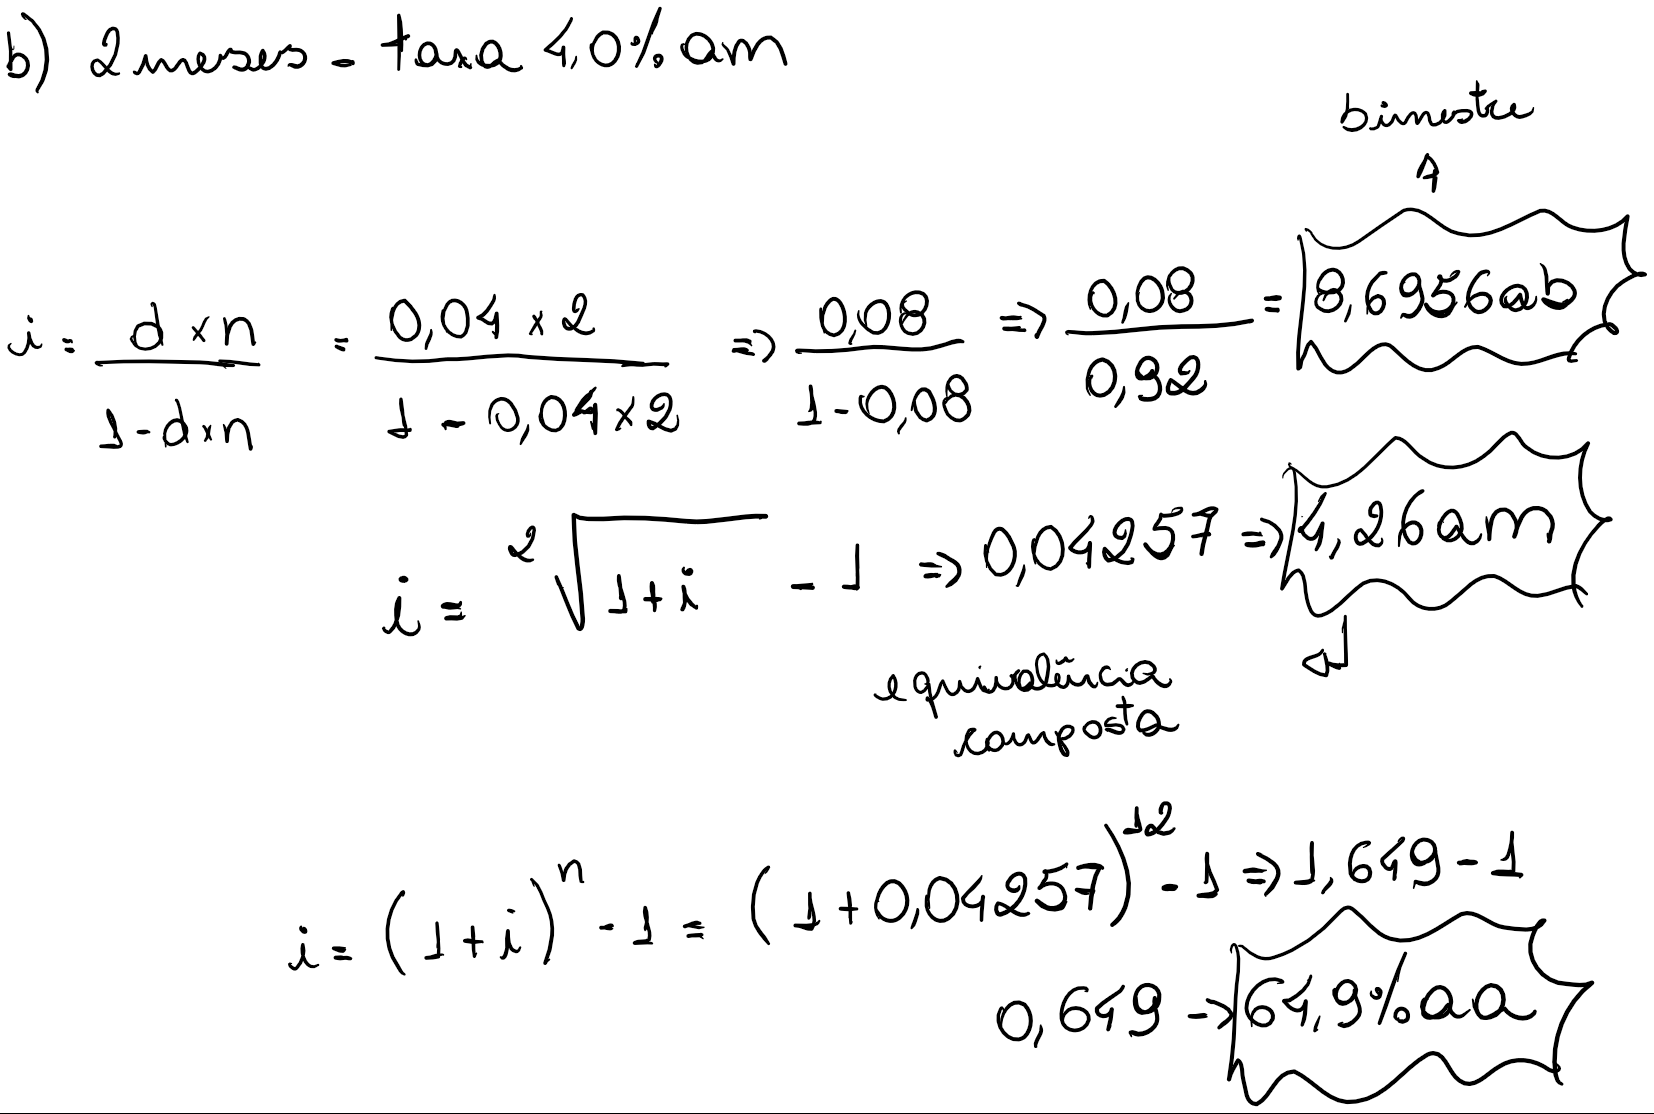 b) 2 meses - taxa 4,0% am
bimestre
i = d x n / 1 - d x n = 0,04 x 2 / 1 - 0,04 x 2 => 0,08 / 1 - 0,08 => 0,08 / 0,92 = 8,6956 ab
i = ²√1 + i - 1 => 0,04257 => 4,26 am
equivalência
composta
i = (1 + i)ⁿ - 1 = (1 + 0,04257)¹² - 1 => 1,649 - 1
0,649 -> 64,9% aa